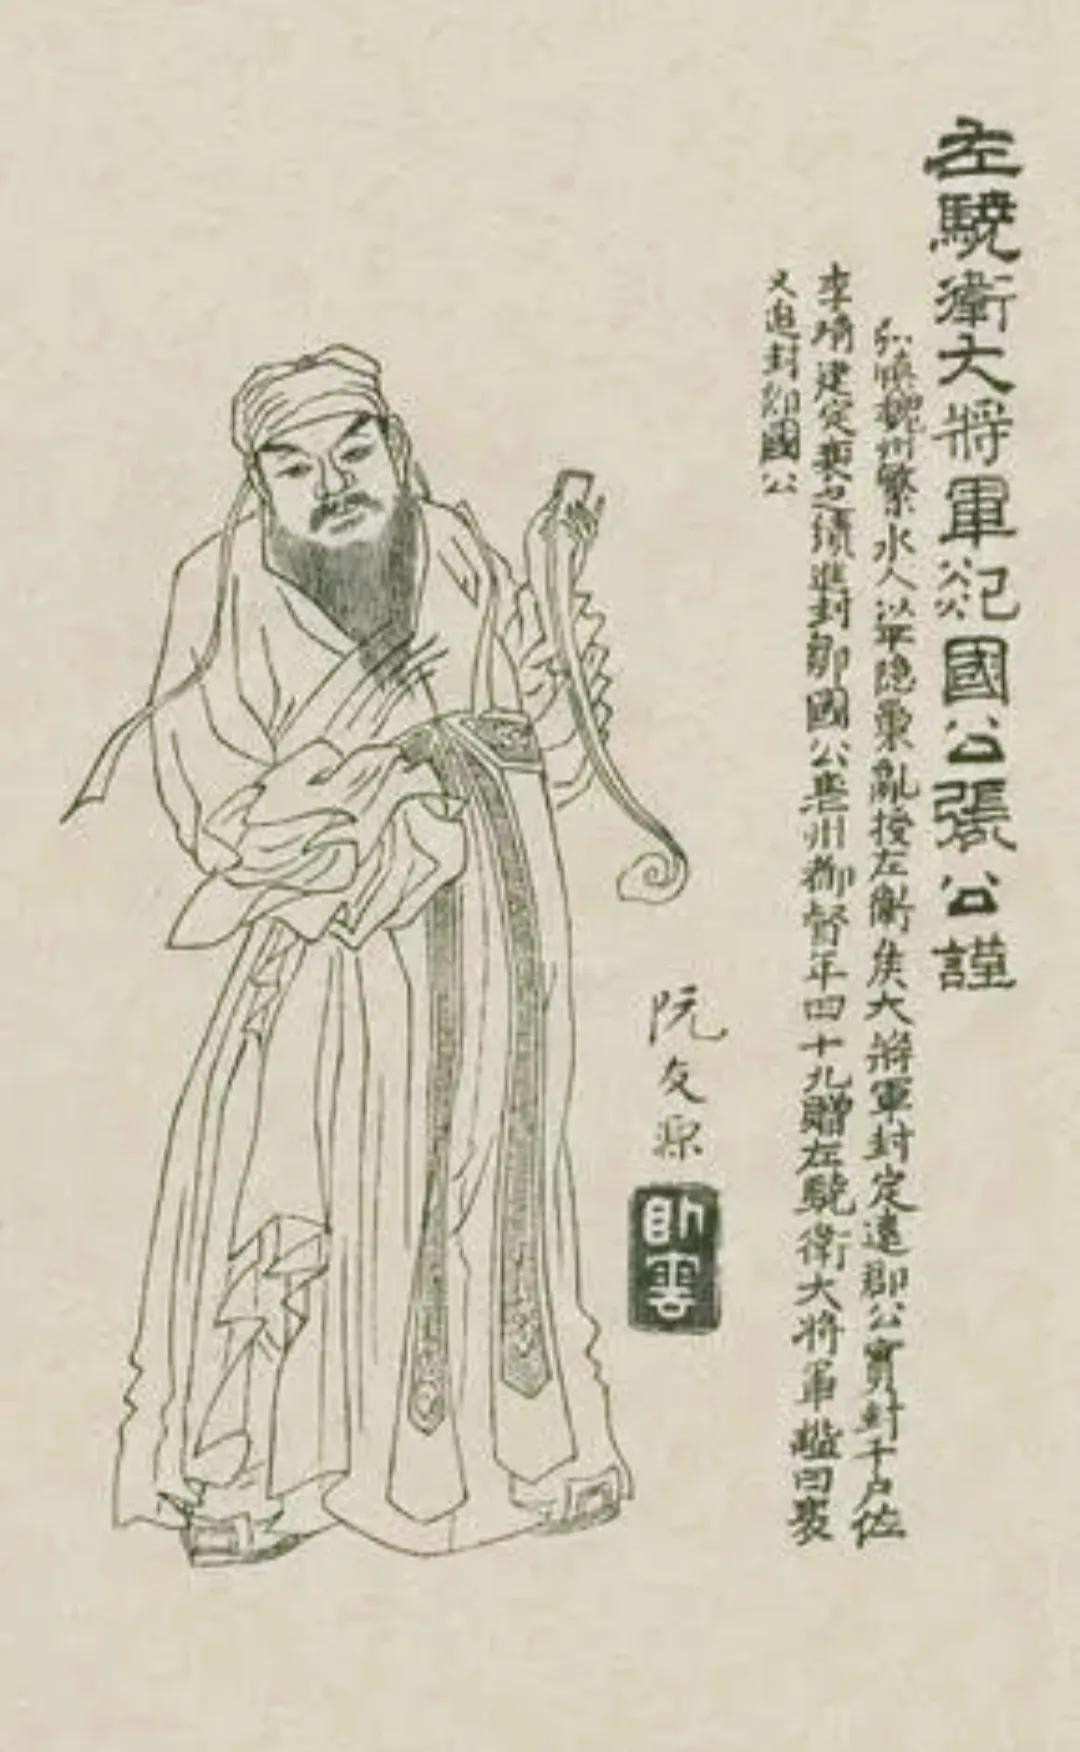 左驍衛大將軍郯國公張公謹
弘慎魏州繁水人以平隐東亂授左衛矦大將軍封定遠郡公實封千戶佐
李靖建定襄之績進封鄒國公㐮州都督年四十九贈左驍衛大將軍謚曰襄
又進封郯國公
阮友源